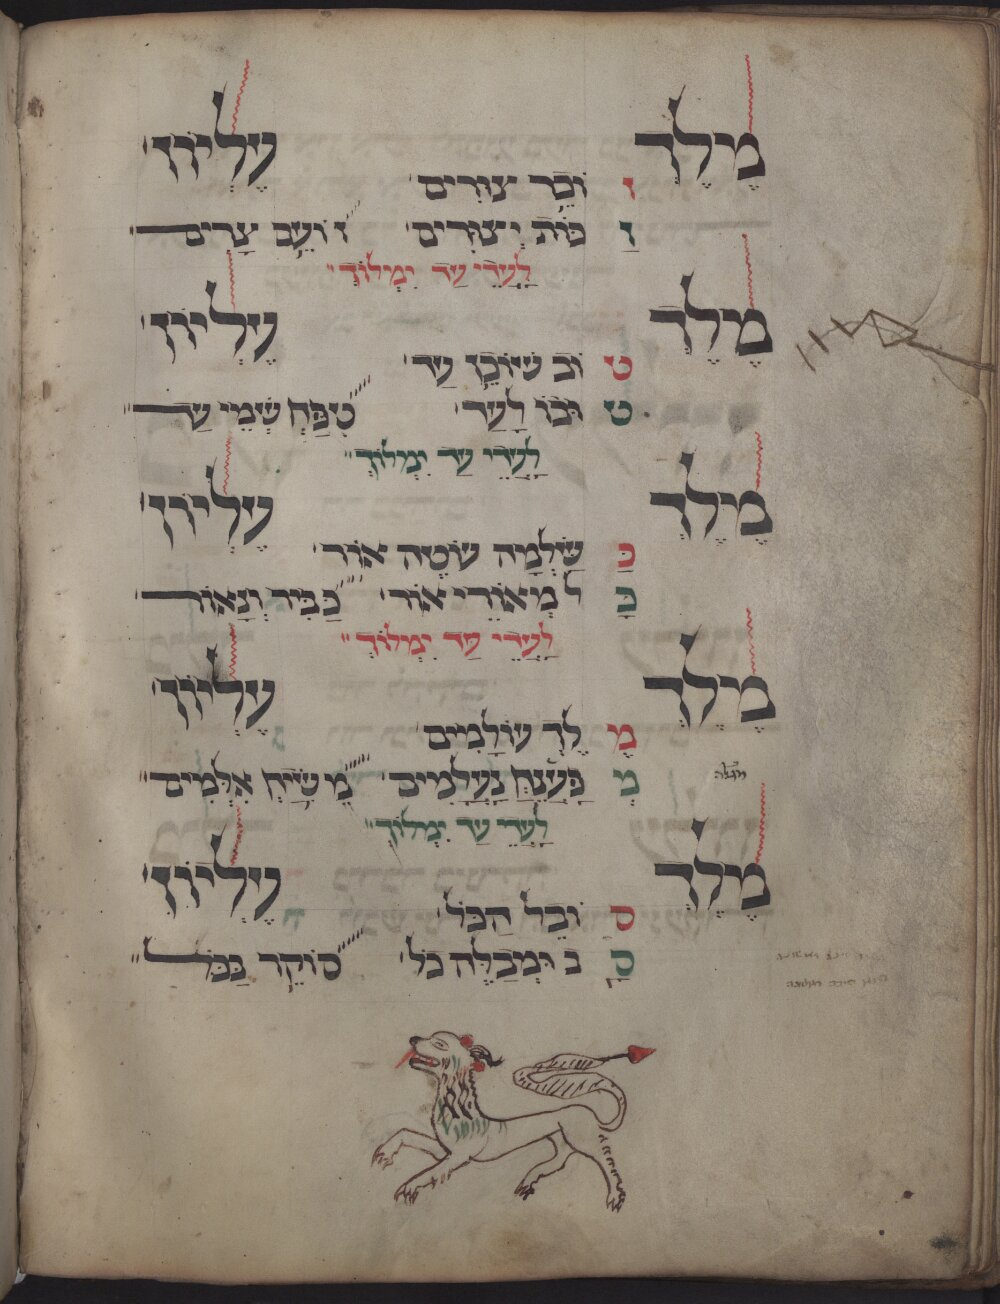 מלך עליון
זוכר צורים
זכות יצורים זועם צרים
לעדי עד ימלוך
מלך עליון
טוב שוכן עד
טובו לעד טפח שמי עד
לעדי עד ימלוך
מלך עליון
כשלמה עוטה אור
כל מאורי אור כביר ונאור
לעדי עד ימלוך
מלך עליון
מלך עולמים
מפענח נעלמים משיח אלמים
לעדי עד ימלוך
מלך עליון
סובל הכל
סב ומבלה כל סוקר בכל